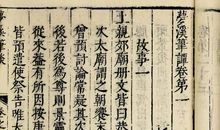 夢溪筆談卷第一
故事一
上親郊廟册文皆曰恭
次太廟謂之朝饗末
曾預討論常疑其次
若後爲尊則景靈
從來蓋有所因按唐
皆預遣使祭告唯